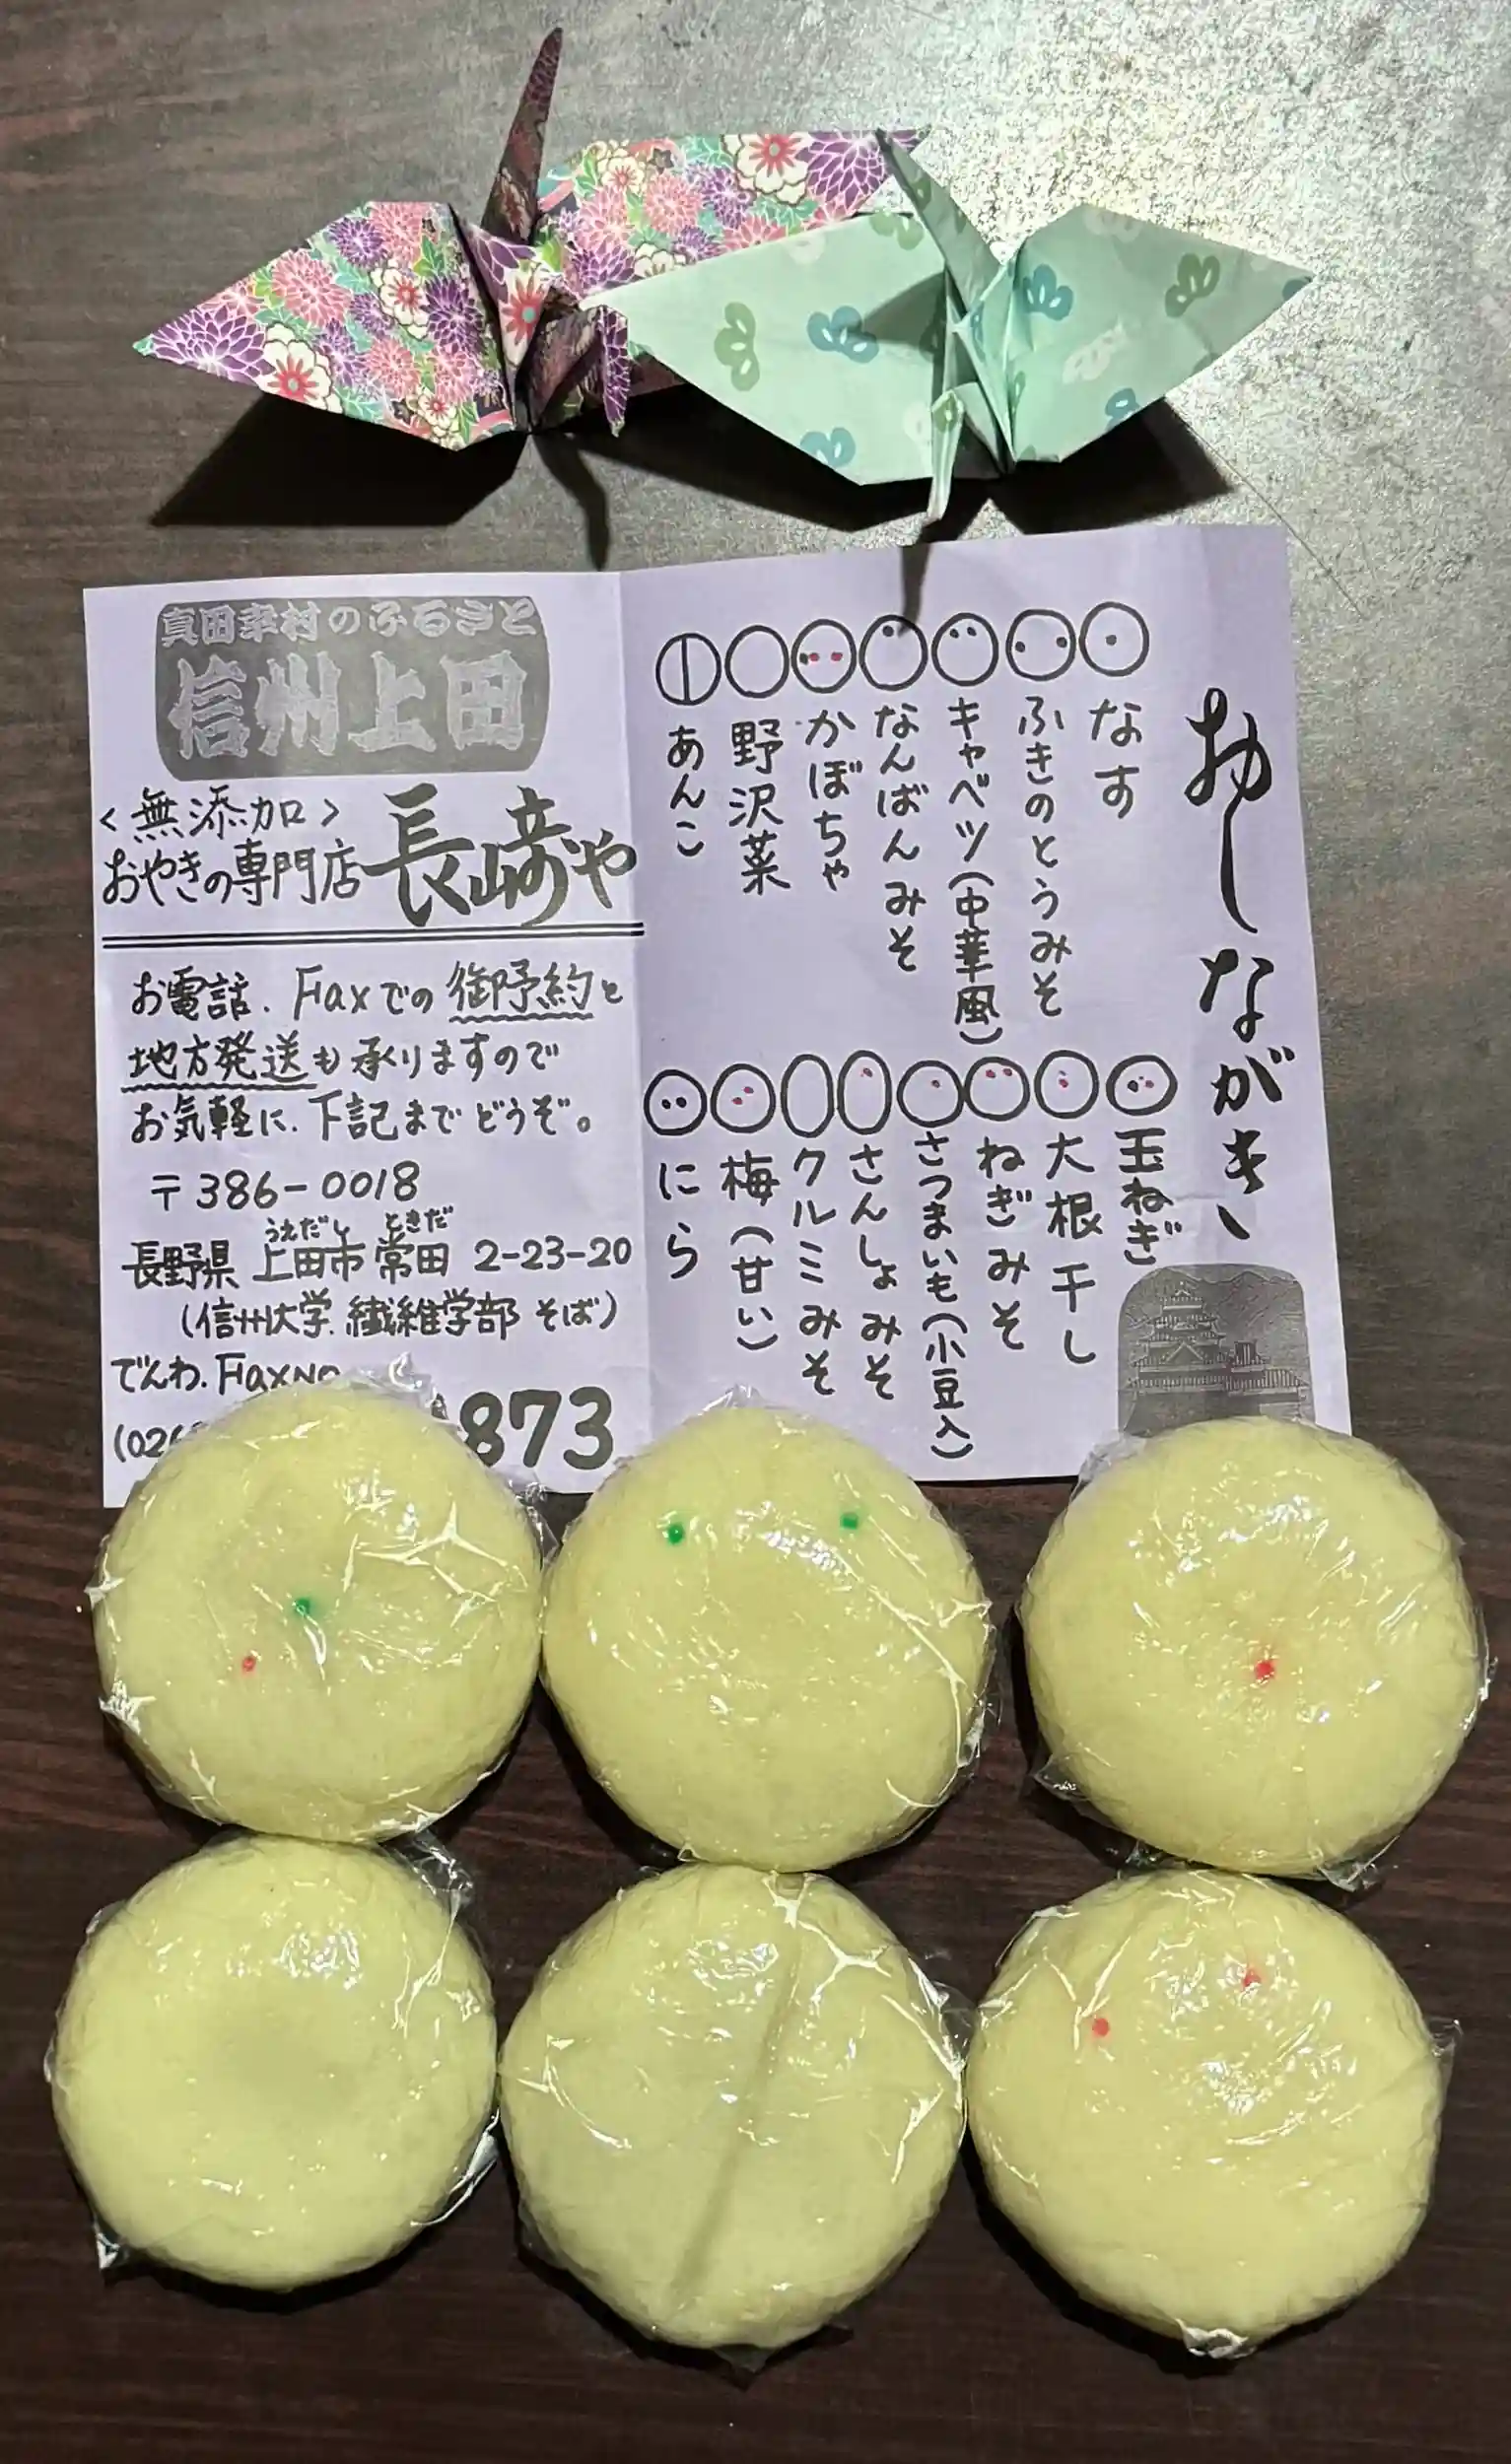 おしながき
なす
ふきのとうみそ
キャベツ(中華風)
なんばんみそ
かぼちゃ
野沢菜
あんこ
玉ねぎ
大根干し
ねぎみそ
さつまいも(小豆入)
さんしょみそ
クルミみそ
梅(甘い)
にら
真田幸村のふるさと
信州上田
<無添加>
おやきの専門店 長崎や
お電話、Faxでの御予約と
地方発送も承りますので
お気軽に、下記までどうぞ。
〒386-0018
うえだし ときだ
長野県 上田市 常田 2-23-20
(信州大学 繊維学部 そば)
でんわ、FaxNo
(026
873